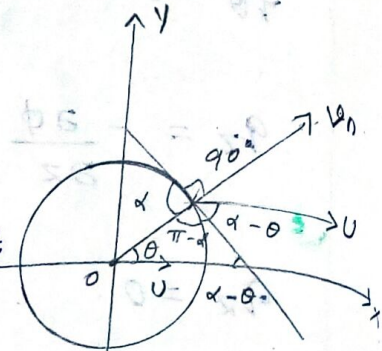 Y
V_n
90°
α
α - θ
U
π - α
θ
O
U
α - θ
x